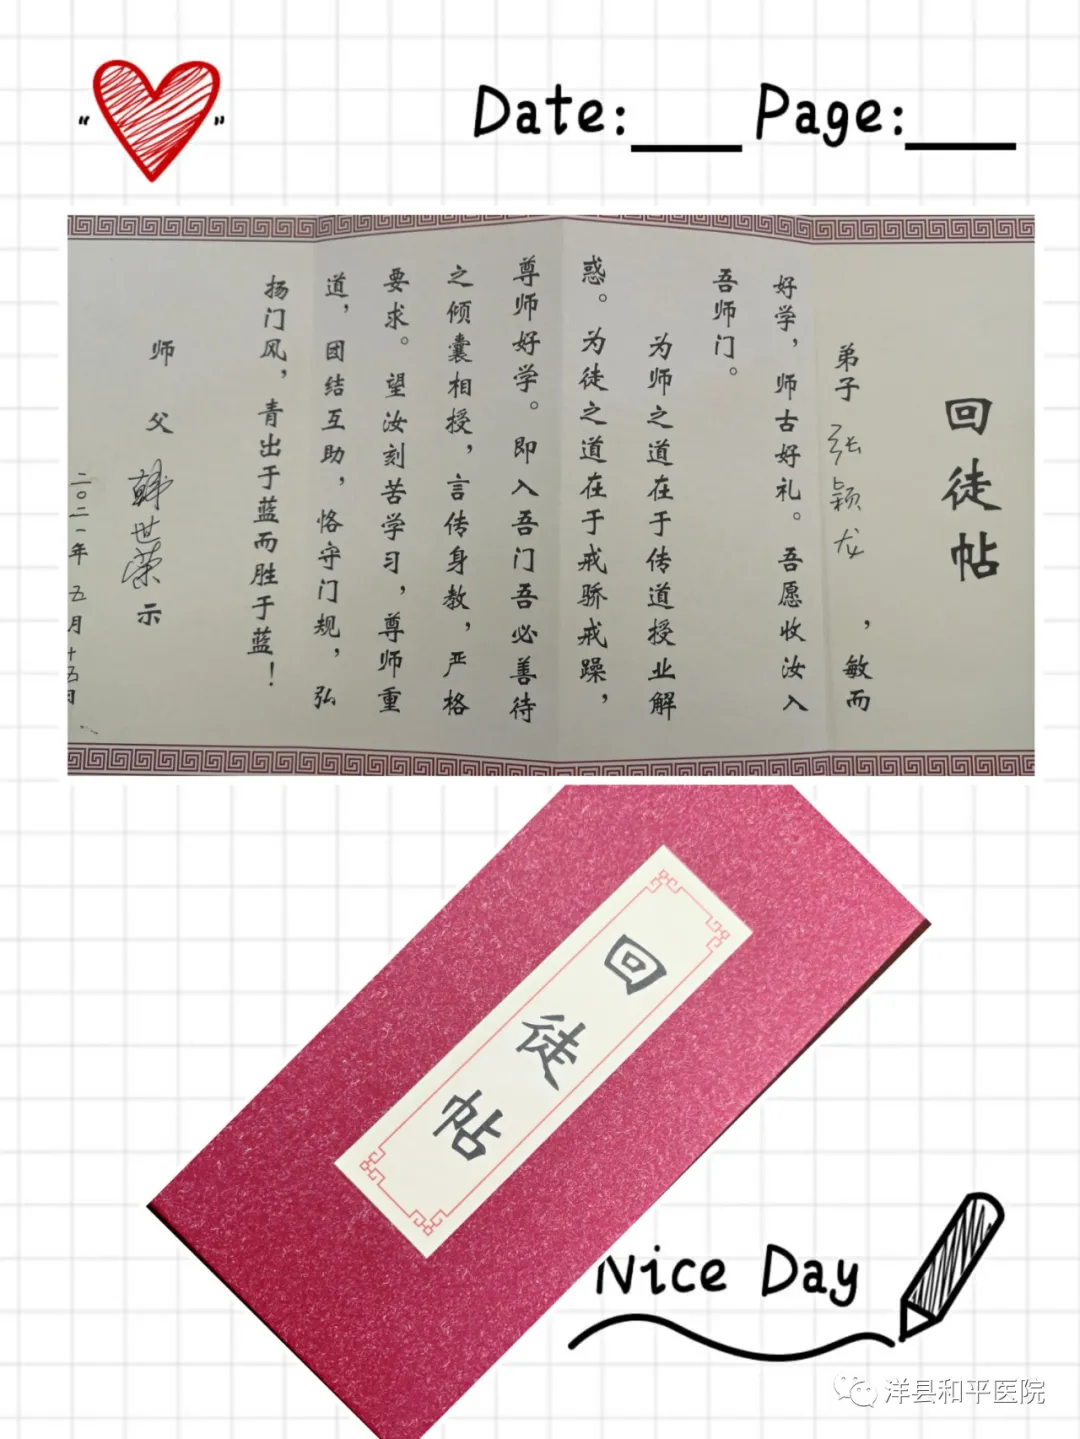 Date: Page:
回徒帖
弟子 张颖龙 ，敏而
好学，师古好礼。吾愿收汝入
吾师门。
为师之道在于传道授业解
惑。为徒之道在于戒骄戒躁，
尊师好学。即入吾门吾必善待
之倾囊相授，言传身教，严格
要求。望汝刻苦学习，尊师重
道，团结互助，恪守门规，弘
扬门风，青出于蓝而胜于蓝！
师父 韩世荣 示
二〇二一年五月十五日
回徒帖
Nice Day
洋县和平医院